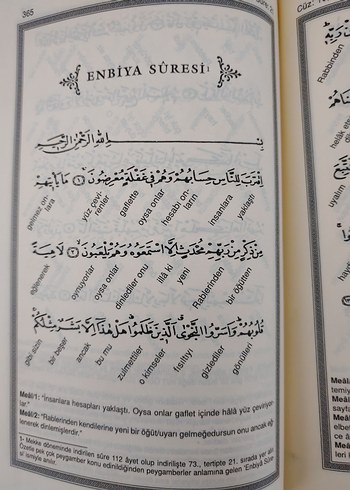 365
ENBİYA SÛRESİ
بِسْمِ اللّٰهِ الرَّحْمٰنِ الرَّحِيمِ
اِقْتَرَبَ لِلنَّاسِ حِسَابُهُمْ وَهُمْ فِي غَفْلَةٍ مُعْرِضُونَ ۝١ مَا يَأْتِيهِمْ
yaklaştı insanlara hesabı onların oysa onlar gaflette yüz çevirenler gelmez onlara
مِنْ ذِكْرٍ مِنْ رَبِّهِمْ مُحْدَثٍ اِلَّا اسْتَمَعُوهُ وَهُمْ يَلْعَبُونَ ۝٢ لَاهِيَةً
bir öğütten Rablerinden yeni illâ ki dinlediler onu oysa onlar oynuyorlar eğlenerek
قُلُوبُهُمْ وَاَسَرُّوا النَّجْوَى الَّذِينَ ظَلَمُوا هَلْ هٰذَا اِلَّا بَشَرٌ مِثْلُكُمْ
gönülleri gizlediler fısıltıyı o kimseler zulmettiler bu mu ancak bir beşer gibi sizin
Meâl/1: "İnsanlara hesapları yaklaştı. Oysa onlar gaflet içinde hâlâ yüz çeviriyorlar."
Meâl/2: "Rablerinden kendilerine yeni bir öğüt/uyarı gelmeğedursun onu ancak eğlenerek dinlemişlerdir."
1- Mekke döneminde indirilen sûre 112 âyet olup indirilişte 73., tertipte 21. sırada yer alır.
Özetle pek çok peygamber konu edinildiğinden peygamberler anlamına gelen 'Enbiyâ Sûresi' ismiyle anılır.
Cüz:
Rabbinden